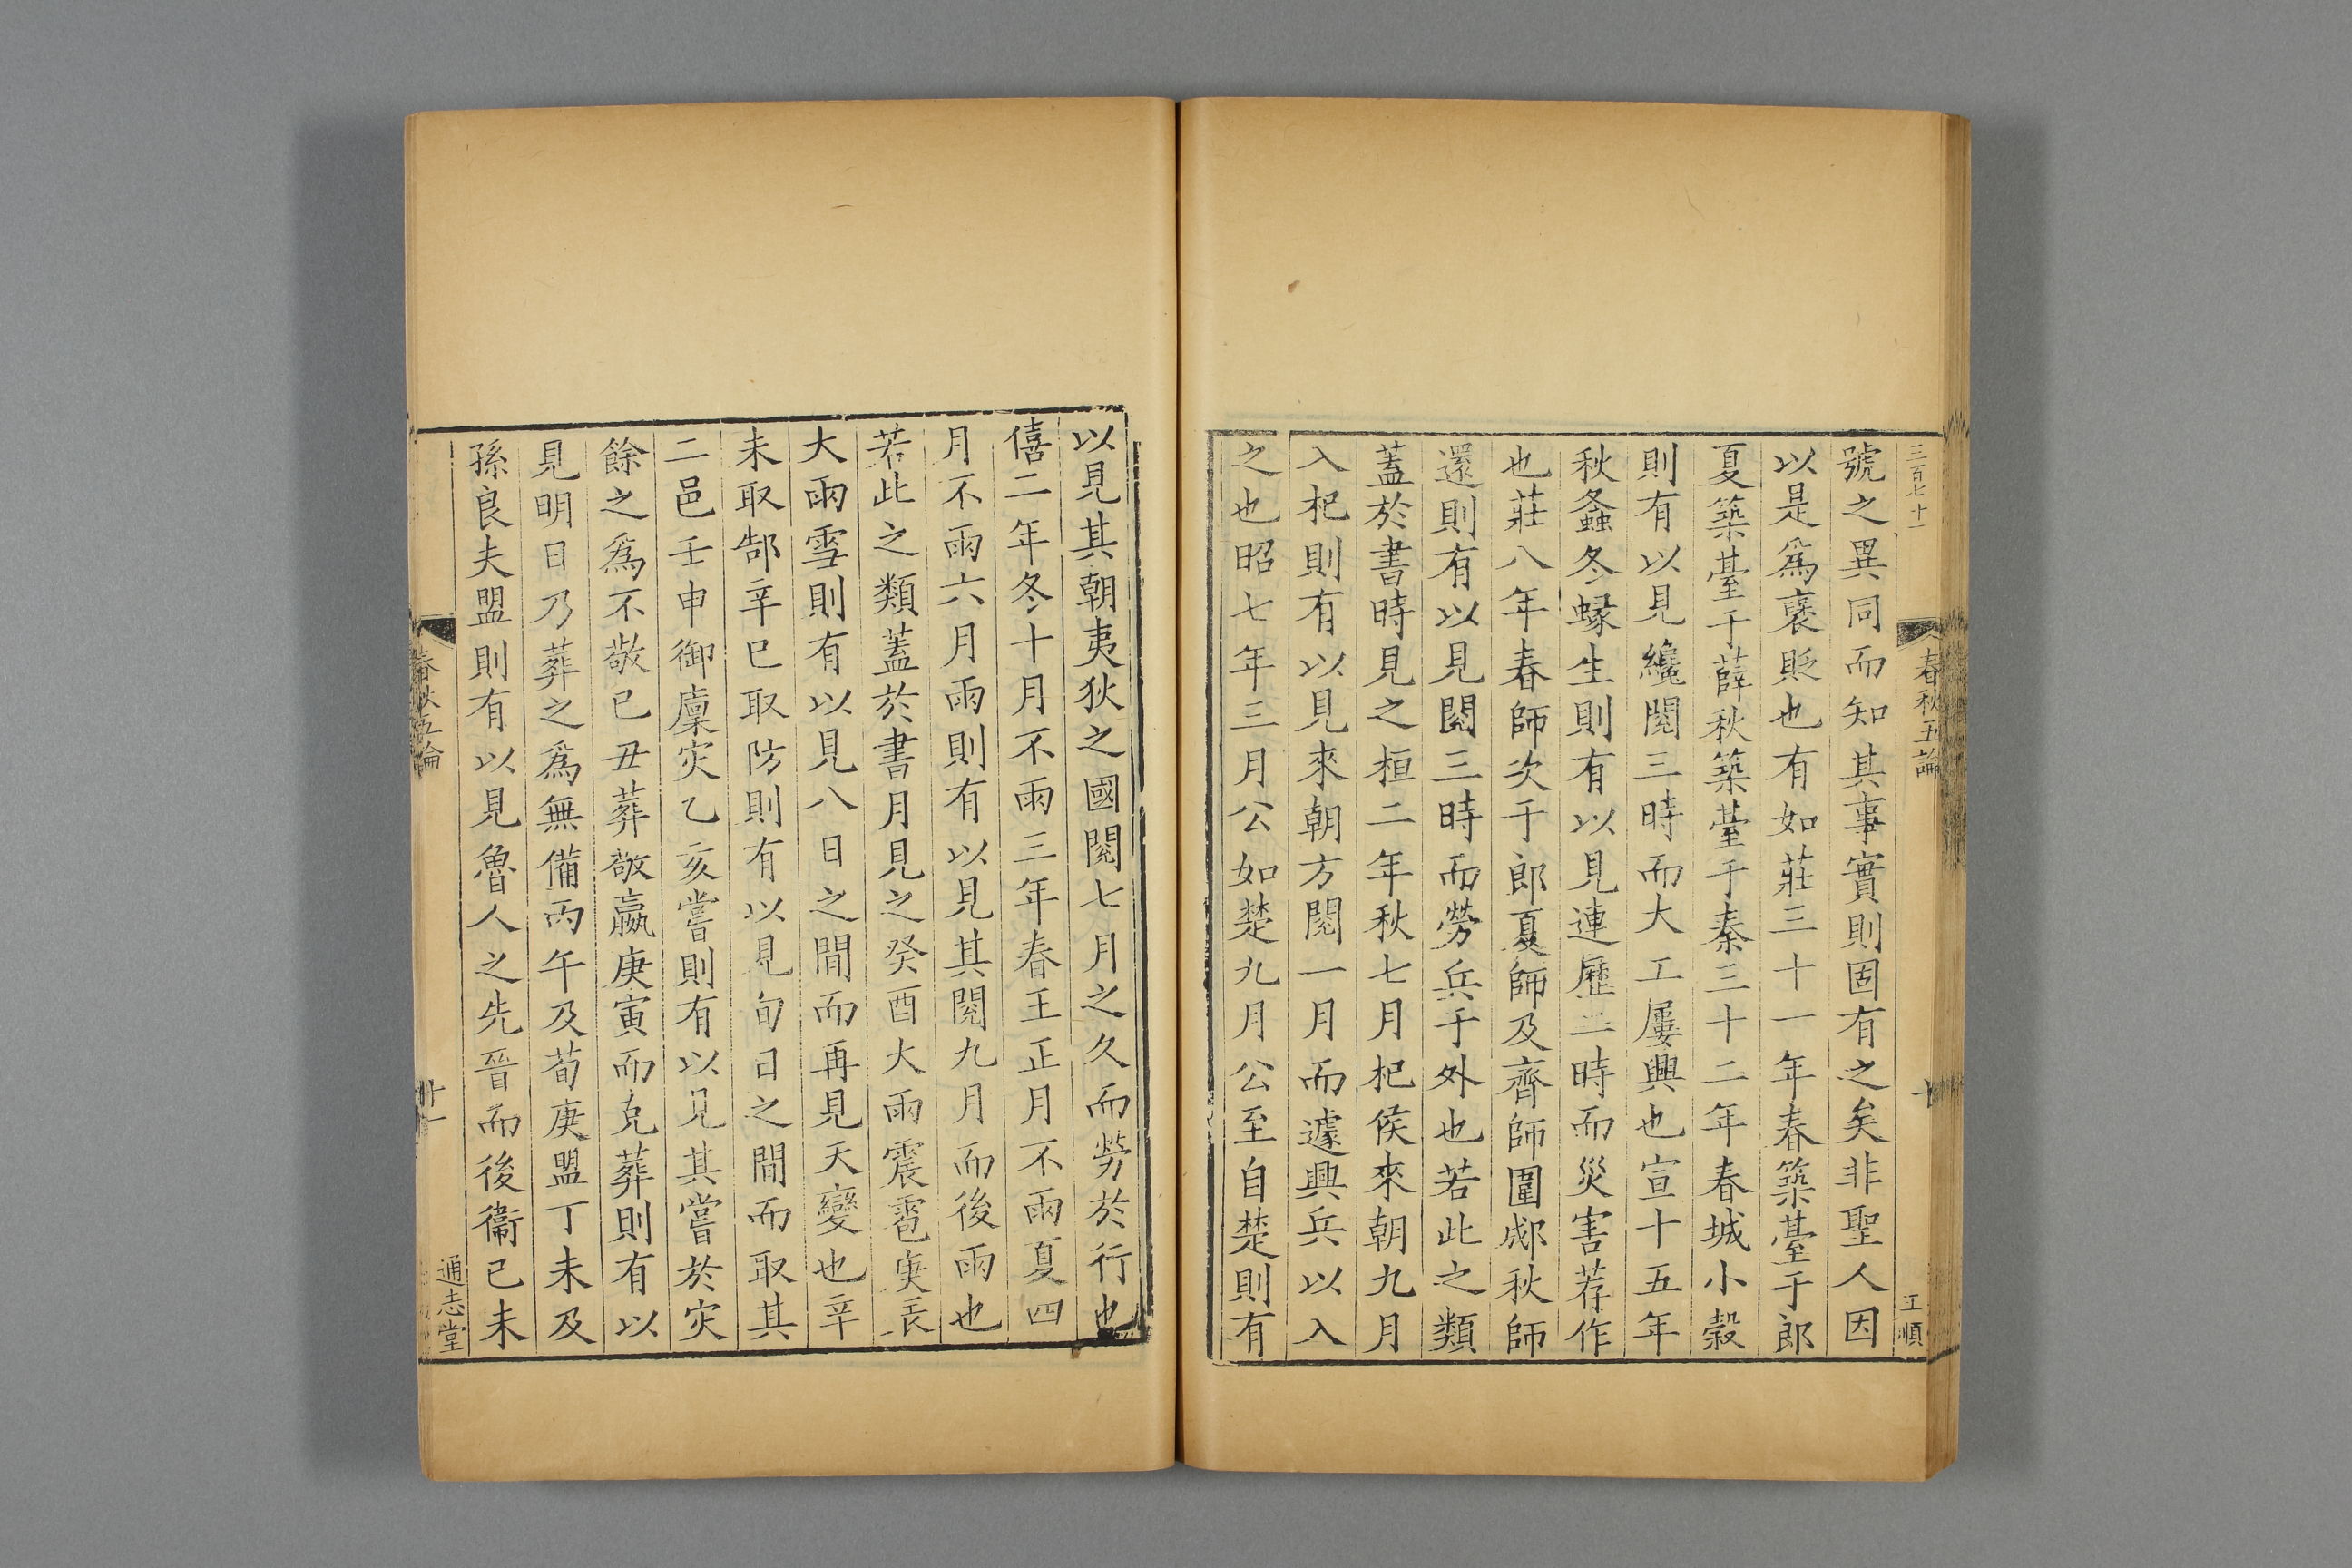 三百七十一
春秋五論
十
工順
號之異同而知其事實則固有之矣非聖人因
以是爲襃貶也有如莊三十一年春築臺于郎
夏築臺于薛秋築臺于秦三十二年春城小穀
則有以見纔閱三時而大工屢興也宣十五年
秋螽冬蝝生則有以見連歷二時而災害荐作
也莊八年春師次于郎夏師及齊師圍郕秋師
還則有以見閱三時而勞兵于外也若此之類
蓋於書時見之桓二年秋七月杞侯來朝九月
入杞則有以見來朝方閱一月而遽興兵以入
之也昭七年三月公如楚九月公至自楚則有
以見其朝夷狄之國閱七月之久而勞於行也
僖二年冬十月不雨三年春王正月不雨夏四
月不雨六月雨則有以見其閱九月而後雨也
若此之類蓋於書月見之癸酉大雨震雹庚辰
大雨雪則有以見八日之間而再見天變也辛
未取郜辛巳取防則有以見旬日之間而取其
二邑壬申御廩灾乙亥嘗則有以見其嘗於灾
餘之爲不敬己丑葬敬嬴庚寅而克葬則有以
見明日乃葬之爲無備丙午及荀庚盟丁未及
孫良夫盟則有以見魯人之先晉而後衞己未
春秋五論
十一
通志堂